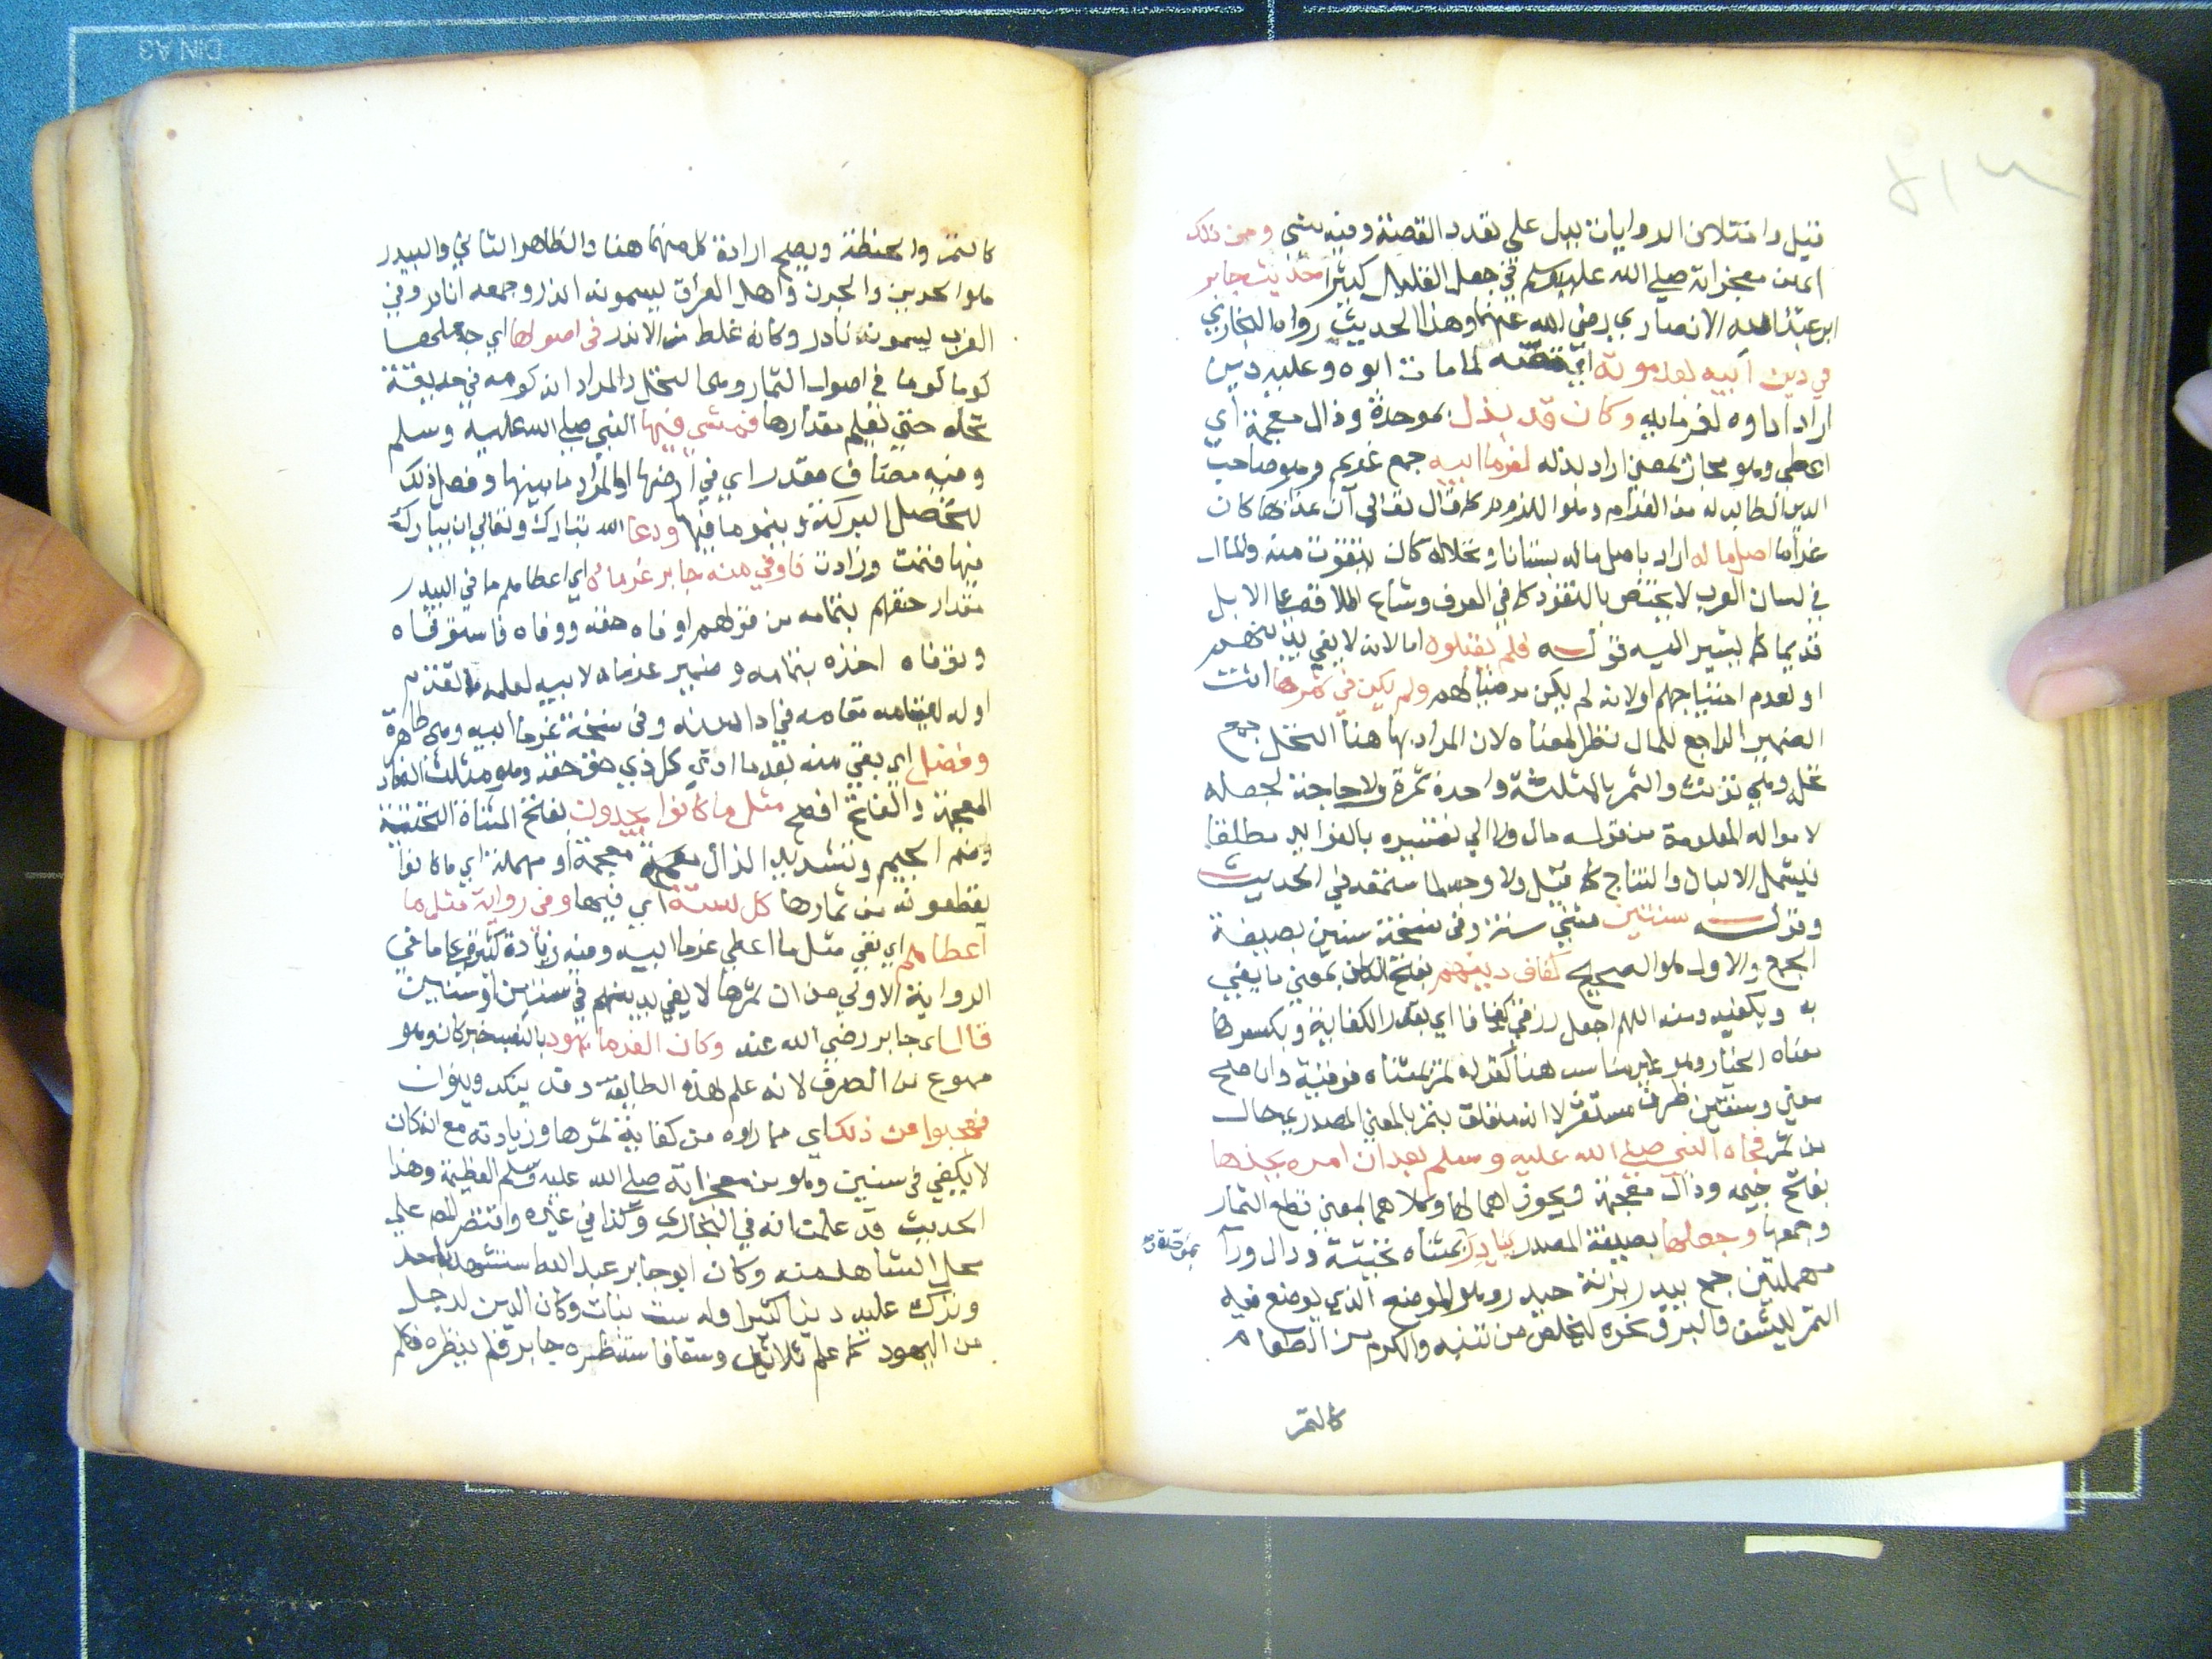 قيل واختلاف الروايات يدل على تعدد القصة وفيه شئ ومن ذلك
اي من معجزاته صلى الله عليه وسلم في جعل القليل كثيرا حديث جابر
ابن عبد الله الانصاري رضي الله عنهما وهذا الحديث رواه البخاري
في دين ابيه بعد موته اي قصته لما مات ابوه وعليه دين
اراد اداوه لغرمايه وكان قد بذل بموحدة وذال معجمة اي
اعطى وهو مجاز بمعنى اراد بذله لغرما ابيه جمع غريم وهو صاحب
الدين الطالب له من الغرام وهو اللزوم كما قال تعالى ان عذابها كان
غراما اصل ماله اراد باصل ماله بستانا ونخلا له كان يتقوت منه والمال
في لسان العرب لا يختص بالنقود كما في العرف وشاع اطلاقه على الابل
قديما كما يشير اليه قوله فلم يقبلوه اما لانه لا يفي بدينهم
او لعدم احتياجهم او لانه لم يكن مرضيا لهم ولم يكن في ثمرها انث
الضمير الراجع للمال نظرا لمعناه لان المراد بها هنا النخل جمع
نخلة وهي تؤنث والثمر بالمثلثة واحدة ثمرة ولا حاجة لجعله
لامواله المعلومة من قوله مال ولا الى تفسيره بالفوايد مطلقا
ليشمل الالبان والنتاج كما قيل ولا وجه لما ستعقد في الحديث
وقوله سنتين مثنى سنة وفي نسخة سنين بصيغة
الجمع والاول هو الصحيح كفاف دينهم بفتح الكاف بمعنى ما يفي
به ويكفيه ومنه اللهم اجعل رزقي كفافا اي بقدر الكفاية وبكسرها
معناه الخيار وهو غير مناسب هنا كقوله تمر بمثناه فوقية وان صح
معنى وسنتين ظرف مستقر لا انه متعلق بتمر بالمعنى المصدر بحال
من ثمر فجاه النبي صلى الله عليه وسلم بعد ان امره بجذها
بفتح جيمه وذال معجمة ويجوز اهمالها وكلاهما بمعنى قطع الثمار
وجمعها وجعلها بصيغة المصدر بيادر بمثناه تحتية ودال ورآ
بموحدة
مهملتين جمع بيدر بزنة حيدر وهو الموضع الذي يوضع فيه
التمر لينشف والبر ونحوه ليخلص من تبنه والكرم من الطعام
كالتمر
كالتمر والحنطة ويصح ارادة كل منهما هنا والظاهر الثاني والبيدر
هو الجرين والجرن واهل العراق يسمونه اندر وجمعه انادر وفي
العرب يسمونه نادر وكانه غلط من الاندر في اصولها اي جعلها
كوما كوما في اصول الثمار وهي النخل والمراد انه كومه في حديقة
نخله حتى يعلم مقدارها فمشى فيها النبي صلى الله عليه وسلم
وفيه مضاف مقدر اي في ارضها او المراد ما بينها وفعل ذلك
لتحصل البركة وينمو ما فيها ودعا الله تبارك وتعالى ان يبارك
فيها فنمت وزادت فاوفى منه جابر غرماه اي اعطاهم ما في البيدر
مقدار حقهم بتمامه من قولهم اوفاه حقه ووفاه فاستوفاه
وتوفاه اخذه بتمامه وضمير غرماه لابيه لعلمه مما تقدم
او له لقيامه مقامه في اداء دينه وفي نسخة غرما ابيه وهي ظاهرة
وفضل اي بقي منه بعد ما ادى كل ذي حق حقه وهو مثلث الضاد
المعجمة والفتح افصح مثل ما كانوا يجدون بفتح المثناة التحتية
وضم الجيم وتشديد الذال معجمة او مهملة اي ما كانوا
يقطعونه من ثمارها كل سنة اي فيها وفي رواية مثل ما
اعطاهم اي بقي مثل ما اعطى غرما ابيه وفيه زيادة كثيرة على ما في
الرواية الاولى من ان ثمرها لا يفي بدينهم في سنين او سنتين
قال اي جابر رضي الله عنه وكان الغرما يهود بالنصب خبر كان وهو
ممنوع من الصرف لانه علم لهذه الطايفة وقد ينكر وينون
فعجبوا من ذلك اي مما راوه من كفاية ثمرها وزيادته مع انه كان
لا يكفي في سنين وهو من معجزاته صلى الله عليه وسلم العظيمة وهذا
الحديث قد علمت انه في البخاري وكذا في غيره واقتصر المص على
محل الشاهد منه وكان ابو جابر عبد الله استشهد باحد
وترك عليه دينا كثيرا وله ست بنات وكان الدين لرجل
من اليهود كما علم ثلاثين وسقا فاستنظره جابر فلم ينظره فكلم